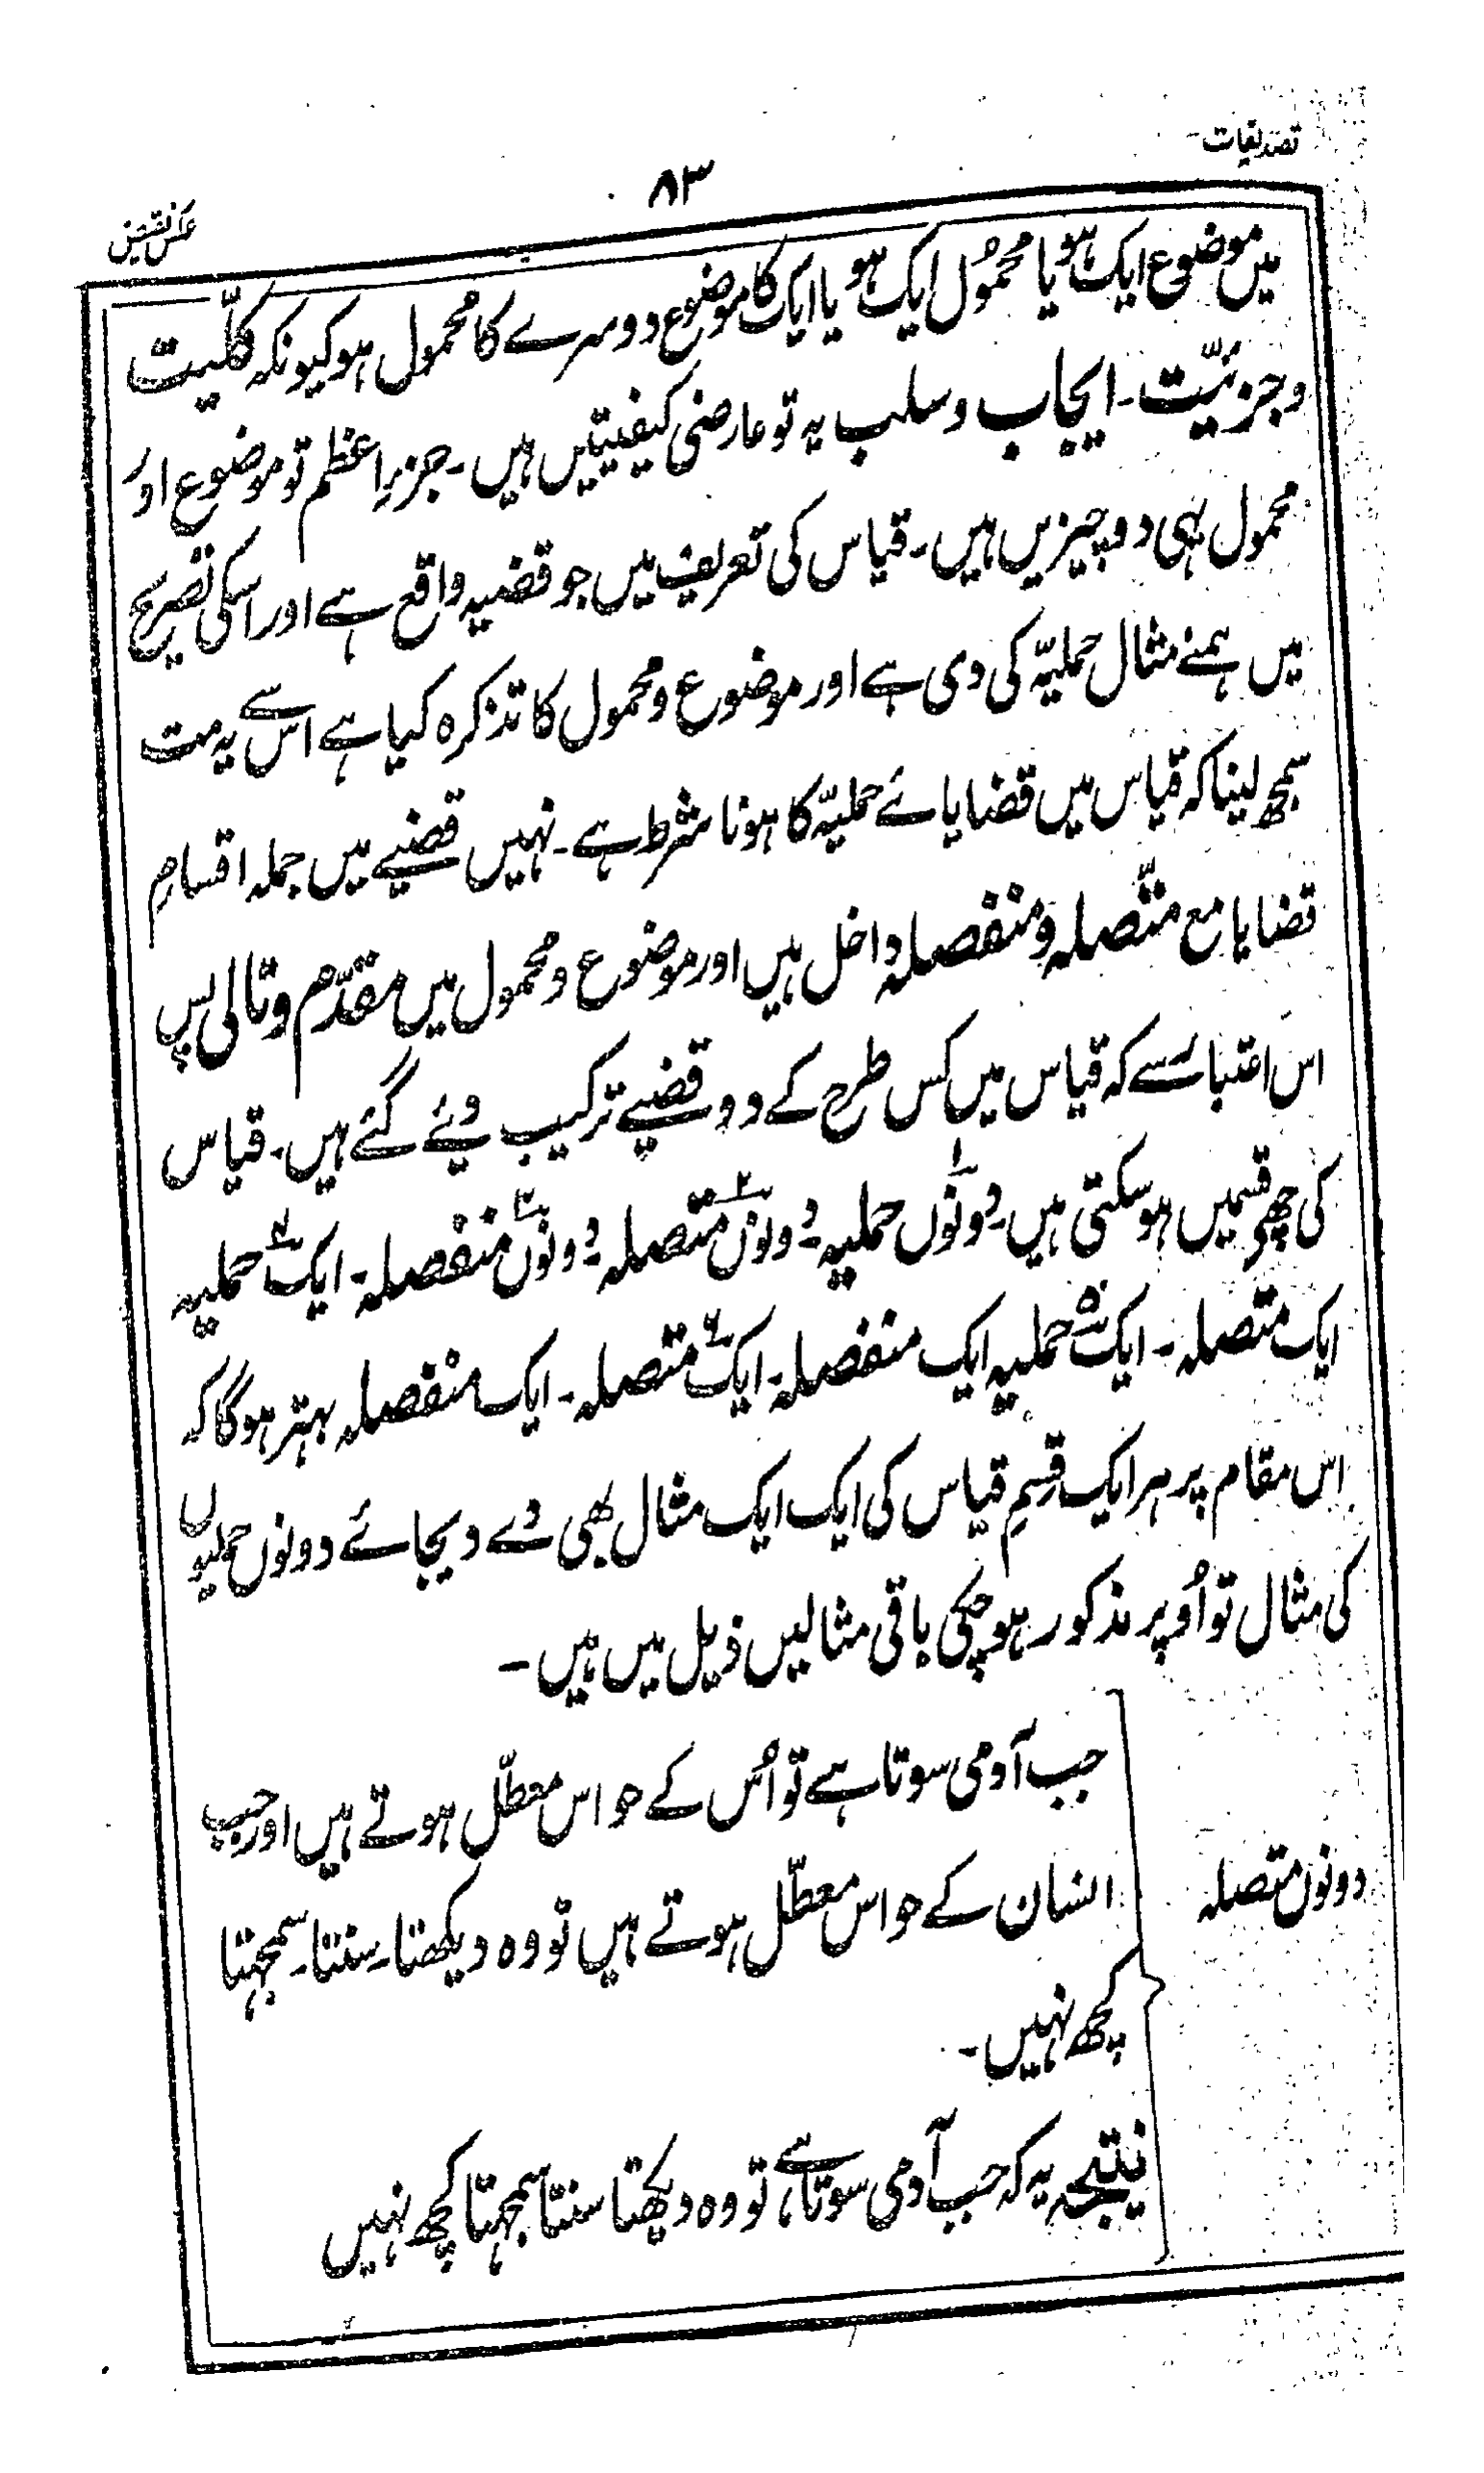 تصدیقات
۸۳
عکس نقیض
میں موضوع ایک ہو یا محمُول ایک ہو یا ایک کا موضوع دوسرے کا محمول ہو کیونکہ کلّیت
و جزئیّت۔ ایجاب و سلب یہ تو عارضی کیفیتیں ہیں۔ جزءِ اعظم تو موضوع اور
محمول یہی دو چیزیں ہیں۔ قیاس کی تعریف میں جو قضیہ واقع ہے اور اسکی تصریح
میں ہمنے مثال حملیّہ کی دی ہے اور موضوع و محمول کا تذکرہ کیا ہے اس سے یہ مت
سمجھ لینا کہ قیاس میں قضایائے حملیّہ کا ہونا شرط ہے۔ نہیں قضیے میں جملہ اقسامِ
قضایا مع متّصلہ و منفصلہ داخل ہیں اور موضوع و محمول میں مقدّم و تالی پس
اس اعتبار سے کہ قیاس میں کس طرح کے دو قضیے ترکیب دیئے گئے ہیں۔ قیاس
کی چھ قسمیں ہو سکتی ہیں۔ ۱ دونوں حملیہ۔ ۲ دونوں متصلہ۔ ۳ دونوں منفصلہ۔ ۴ ایک حملیہ
ایک متصلہ۔ ۵ ایک حملیہ ایک منفصلہ۔ ۶ ایک متصلہ۔ ایک منفصلہ بہتر ہوگا کہ
اس مقام پر ہر ایک قسمِ قیاس کی ایک ایک مثال بھی دے دیجائے دونوں حملیوں
کی مثال تو اُوپر مذکور ہو چکی باقی مثالیں ذیل میں ہیں۔
دونوں متصلہ
جب آدمی سوتا ہے تو اُس کے حواس معطّل ہوتے ہیں اور جب
انسان کے حواس معطّل ہوتے ہیں تو وہ دیکھتا۔ سنتا۔ سمجہتا
کچھ نہیں۔
نیتجہ یہ کہ جب آدمی سوتا ہے تو وہ دیکھتا سنتا سمجہتا کچھ نہیں